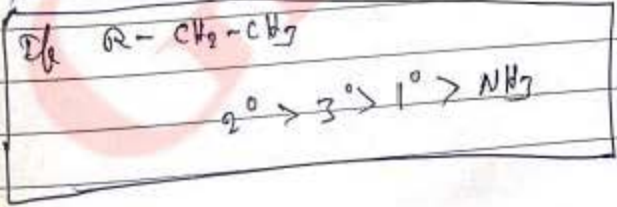 If R - CH2 - CH3
2° > 3° > 1° > NH3